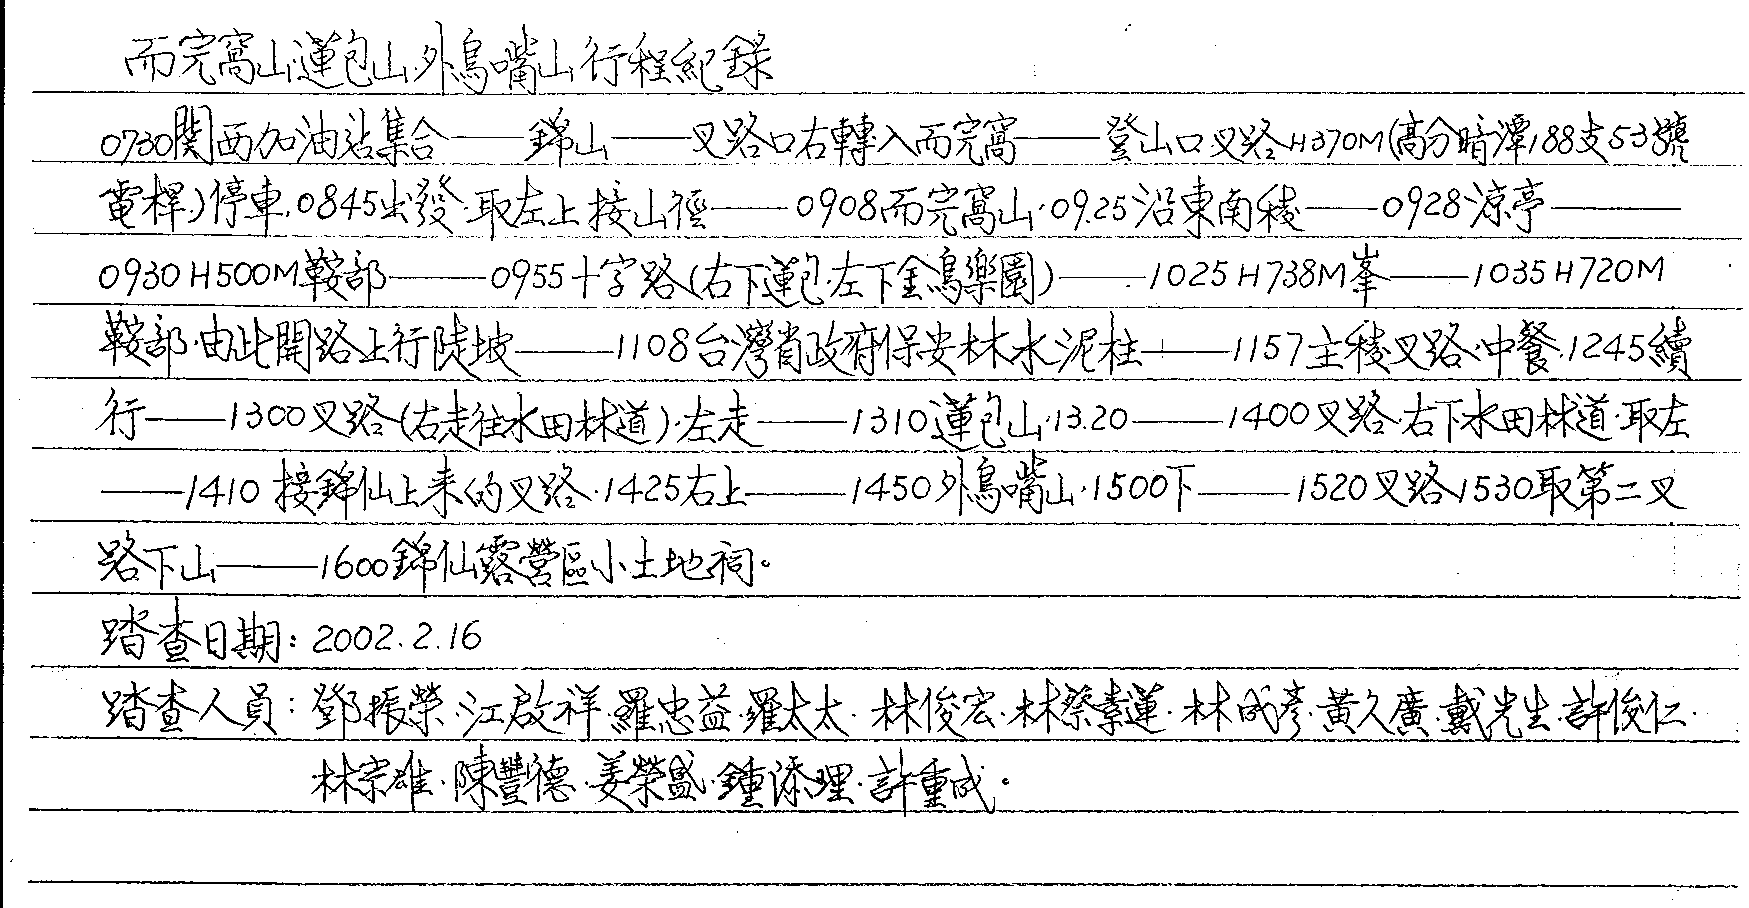 而完窩山.蓮包山.外鳥嘴山行程紀錄
0730關西加油站集合——錦山——叉路口右轉入而完窩——登山口叉路H370M(高分暗潭188支53號
電桿)停車.0845出發.取左上接山徑——0908而完窩山.09.25沿東南稜——0928涼亭——
0930H500M鞍部——0955十字路(右下蓮包.左下金鳥樂園)——1025H738M峯——1035H720M
鞍部.由此開路上行陡坡——1108台灣省政府保安林水泥柱——1157主稜叉路.中餐.1245續
行——1300叉路(右走往水田林道).左走——1310蓮包山.13.20——1400叉路.右下水田林道.取左
——1410接錦仙上來的叉路.1425右上——1450外鳥嘴山.1500下——1520叉路1530取第二叉
路下山——1600錦仙露營區小土地祠。
踏查日期:2002.2.16
踏查人員:鄧振榮.江啟祥.羅忠益.羅太太.林俊宏.林蔡素蓮.林成彥.黃久廣.戴光生.許俊仁.
林宗雄.陳豐德.姜榮盛.鍾添理.許重成。